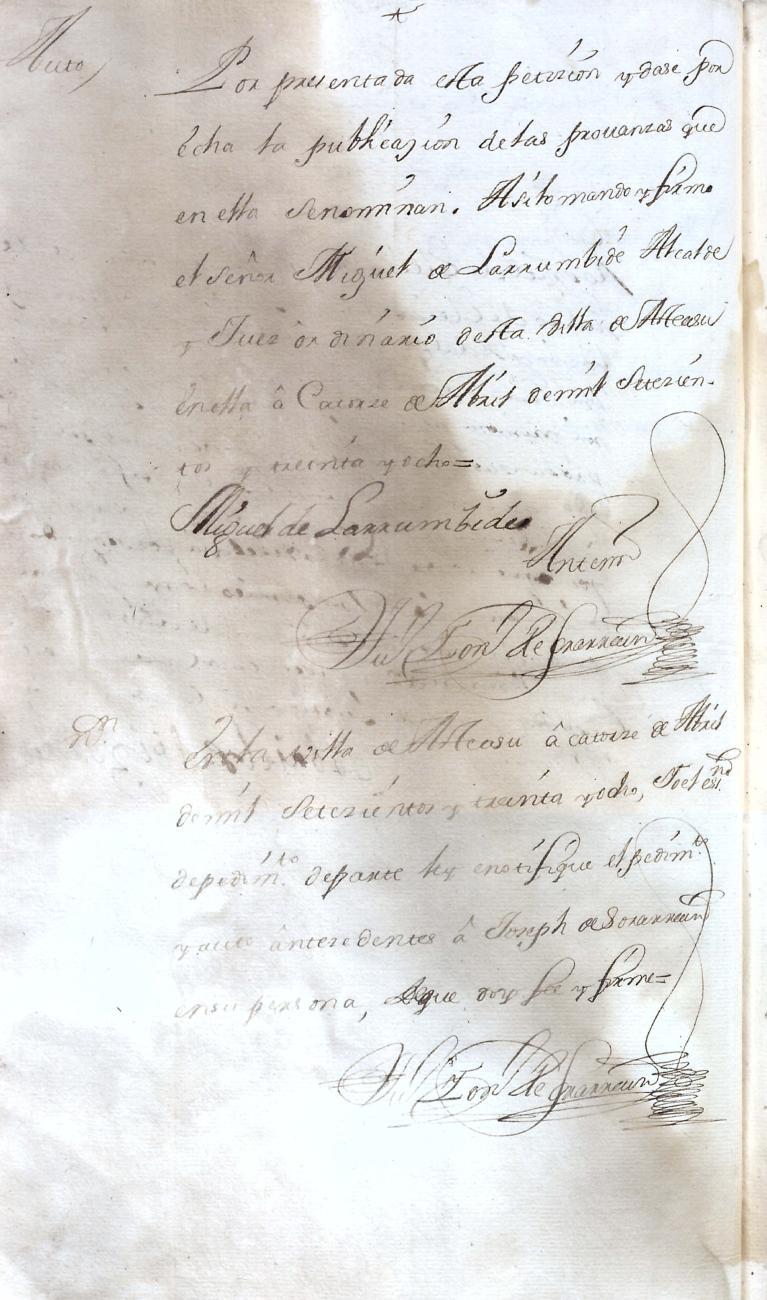 Auto
Por presentada esta petizion y dase por
echa la publicazion de las prouanzas que
en ella se nominan. Asi lo mando y firmo
el señor Miguel de Larrumbide Alcalde
y Juez ordinario desta villa de Alteasu
en ella â Catorze de Abril de mil setezien-
tos y treinta y ocho=
Miguel de Larrumbide
Ante mi
En la villa de Alteasu â catorze de Abril
de mil setezientos y treinta y ocho, Yo el ess.no
de pedim.to de parte ley e notifique el pedim.to
y auto ântezedentes â Joseph de Sorarrain
en su persona, de que doy fee y firme=